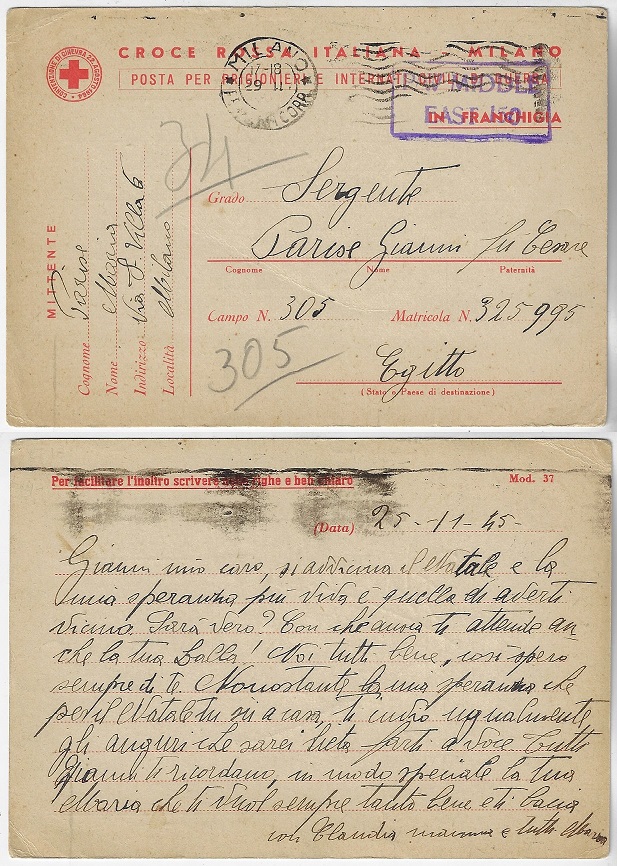 CONVENZIONE DI GINEVRA 22 AGOSTO 1864
CROCE ROSSA ITALIANA - MILANO
POSTA PER PRIGIONIERI E INTERNATI CIVILI DI GUERRA
IN FRANCHIGIA
MILANO
17-18
29 11
MIDDLE
EAST 150
34
MITTENTE
Cognome Parise
Nome Maria
Indirizzo Via S. Villa 6
Località Milano
Grado Sergente
Parise Gianni fu Cesare
Cognome Nome Paternità
Campo N. 305 Matricola N. 325995
305
Egitto
(Stato o Paese di destinazione)
Per facilitare l'inoltro scrivere righe e ben chiaro
Mod. 37
(Data) 25-11-45-
Gianni mio caro, si avvicina il Natale e la
mia speranza più viva e quella di averti
vicino. Sarà vero? Con che ansia ti attende an
che la tua Lalla! Noi tutti bene, così spero
sempre di te. Nonostante la mia speranza che
per il Natale tu sia a casa, ti invio ugualmente
gli auguri che sarei lieta farti a voce. Tutti
Gianni ti ricordano, in modo speciale la tua
Maria che ti vuol sempre tanto bene e ti bacia
con Claudia mamma e tutti